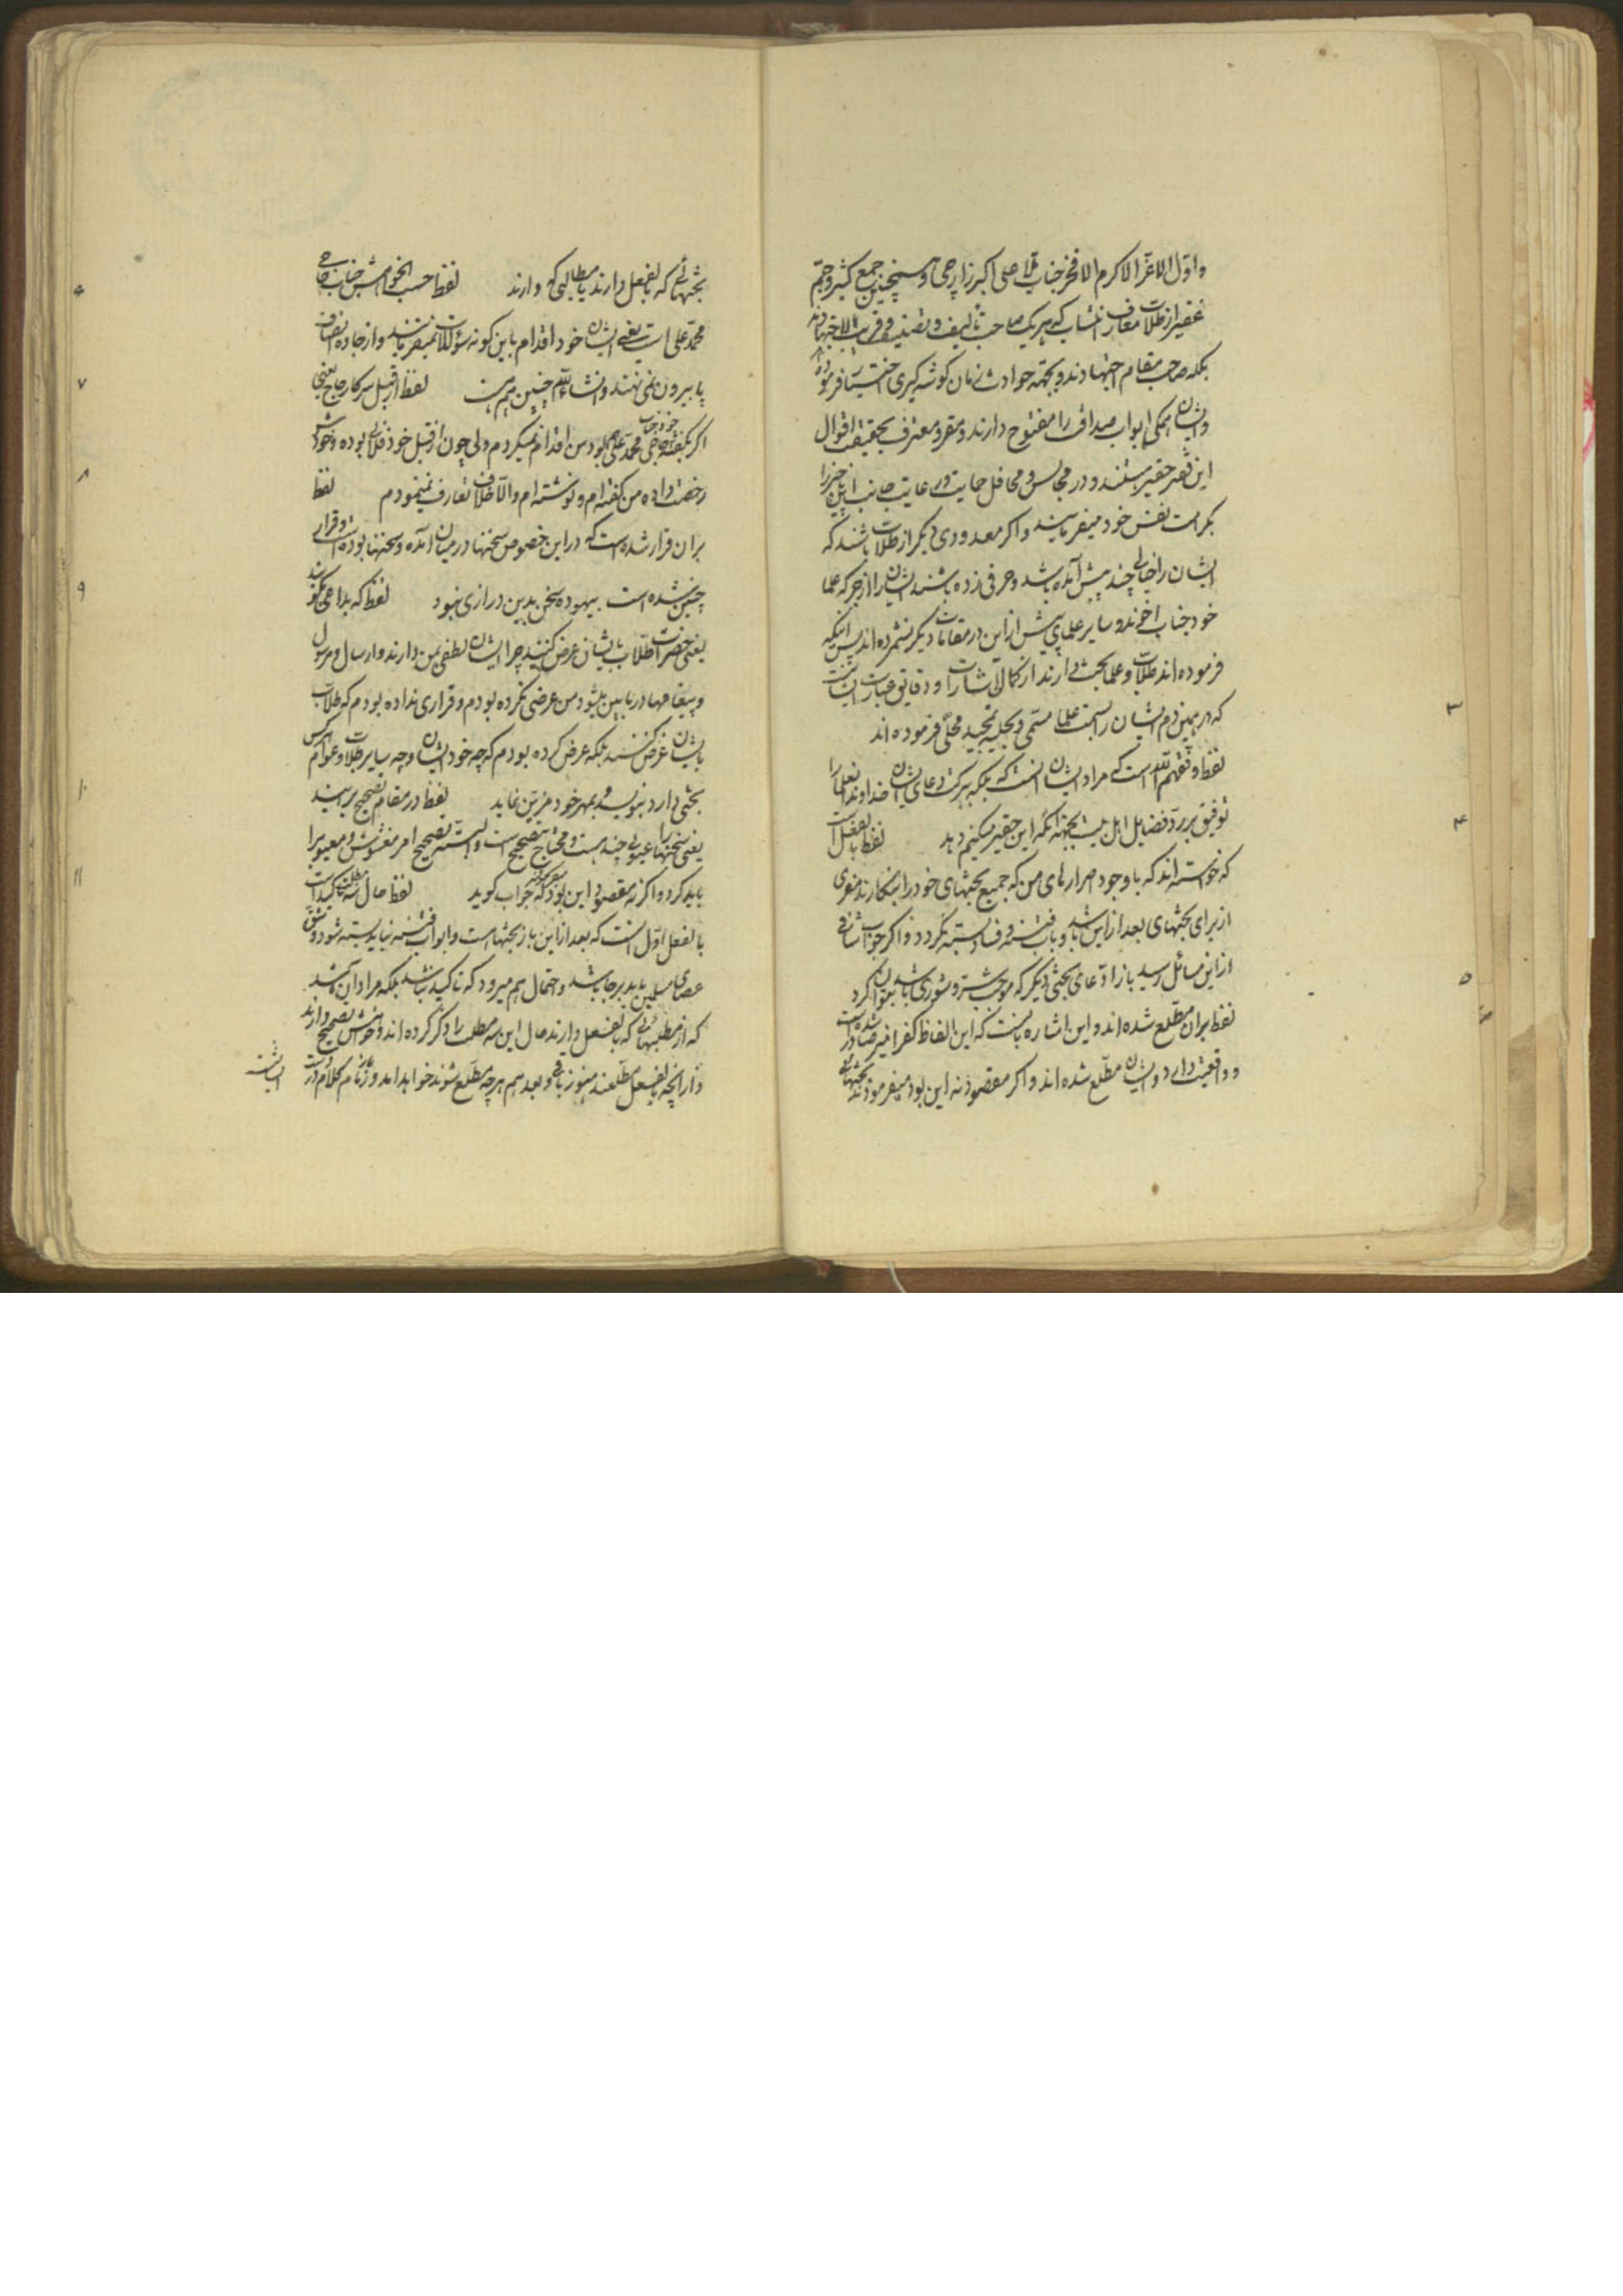 و اوّل الاعزّ الاکرم الافخر جناب ملا علی اکبر زارجی و همچنین جمع کثیر و جمّ
غفیر از طلاب معارف انتساب که هر یک صاحب تألیف و تصنیف و قریب الاجتهادند
بلکه صاحب مقام اجتهادند و بجهة حوادث زمان گوشه گیری اختیار فرموده اند
و ایشان همگی ابواب صداقت را مفتوح دارند و مقر و معترف بحقیقت اقوال
این فقیر حقیر هستند و در مجالس و محافل حمایت و رعایت جانب این ناچیز را
بکرامت نفس خود میفرمایند و اگر معدودی دیگر از طلاب باشند که
ایشان را خیالی چند پیش آمده باشد و حرفی زده باشند ایشان را از جرکه علما
خود جناب اخوند و سایر علما پیش از این در مقامات دیگر نشمرده اند پس اینکه
فرموده اند طلاب و علما بحث دارند از کمال اشارات و دقایق عبارات ایشانست
که در همین دم ایشان را بسمت علما مسمی و بحلیه تمجید محلّی فرموده اند
۳
لفظ وفقهم الله است که مراد ایشان آنست که بلکه ببرکت دعای ایشان خداوند علما را
توفیق بر ردّ فضایل اهل بیت بجهة آنکه این حقیر میگویم دهد لفظ بالفعل است
۴
که خواسته اند که با وجود اصرارهای من که جمیع بحثهای خود را بنگارند مفری
از برای بحثهای بعد از این باشد و باب فتنه و فساد بسته نگردد و اگر جواب شافی
از این مسائل رسید باز ادّعای بحثی دیگر که موجب شر و شوری باشد بتوان کرد
۵
لفظ بران مطّلع شده اند و این اشاره بانست که این الفاظ کفرآمیز صادر شده است
و واقعیت دارد و ایشان مطّلع شده اند و اگر مقصود نه این بود میفرمودند بحثهائی
بحثهائی که بالفعل دارند یا مطالبی که دارند لفظ حسب الخواهش جناب حاجی
۶
محمد علی است یعنی ایشان خود اقدام باین گونه سؤالات نمیفرمایند و از جاده انصاف
پا بیرون نمی نهند و انشاءالله چنین هم هست لفظ از قبل سرکار حاج یعنی
۷
اگر بگفته خود جناب حاجی محمد علی بود من اقدام نمیکردم ولی چون از قبل خود فلانی بوده و خودش
رخصت داده من گفته ام و نوشته ام و الّا خلاف تعارف نمینمودم لفظ
۸
بران قرار شده است که در این خصوص سخنها در میان آمده و سخنها بوده است و قراری
چنین شده است بیهوده سخن بدین درازی نبود لفظ که بداعی بگویند
۹
یعنی حضرات طلّاب بایشان عرض کنند چرا ایشان لطفی بمن دارند و ارسال و مرسول
و پیغامها در مابین میشود من عرضی نکرده بودم و قراری نداده بودم که طلاب
بایشان عرض کنند بلکه عرض کرده بودم که چه خود ایشان و چه سایر طلاب و عوام هرکس
بحثی دارد بنویسد و بمهر خود مزین نماید لفظ در مقام تصحیح برآیند
۱۰
یعنی سخنها را عیوبی چند هست و محتاج بتصحیح است و البته تصحیح امر مغشوش و معیوب را
باید کرد و اگر نه مقصود این بود میفرمودند که جواب گوید لفظ حال سه مطلب تأکید است
۱۱
بالفعل اوّل است که بعد از این باز بحثها است و ابواب فتنه نباید بسته شود و شقّ
عصای مسلمین باید برجا باشد و احتمال هم میرود که تأکید نباشد بلکه مراد آن باشد
که از مطلبهائی که بالفعل دارند حال این سه مطلب را ذکر کرده اند و خواهش تصحیح دارند
و از آنچه بالفعل مطّلعند هنوز باقی و بعد هم هر چه مطّلع شوند خواهد آمد و زمام کلام در دست
ایشانست